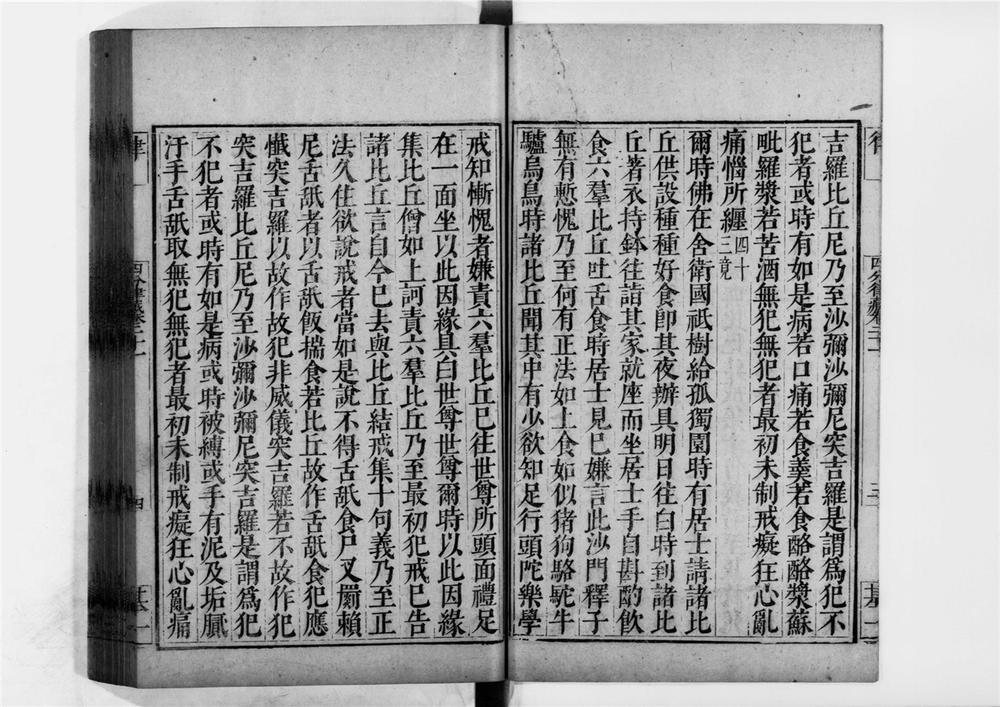 吉羅比丘尼乃至沙彌沙彌尼突吉羅是謂爲犯不
犯者或時有如是病若口痛若食羹若食酪酪漿蘇
毗羅漿若苦酒無犯無犯者最初未制戒癡狂心亂
痛惱所纏四十三竟
爾時佛在舍衛國祇樹給孤獨園時有居士請諸比
丘供設種種好食即其夜辦具明日往白時到諸比
丘著衣持鉢往詣其家就座而坐居士手自斟酌飲
食六羣比丘吐舌食時居士見已嫌言此沙門釋子
無有慙愧乃至何有正法如上食如似猪狗駱駝牛
驢烏鳥時諸比丘聞其中有少欲知足行頭陀樂學
戒知慚愧者嫌責六羣比丘已往世尊所頭面禮足
在一面坐以此因緣具白世尊世尊爾時以此因緣
集比丘僧如上訶責六羣比丘乃至最初犯戒已告
諸比丘言自今已去與比丘結戒集十句義乃至正
法久住欲說戒者當如是說不得舌舐食尸叉罽賴
尼舌舐者以舌舐飯摶食若比丘故作舌舐食犯應
懺突吉羅以故作故犯非威儀突吉羅若不故作犯
突吉羅比丘尼乃至沙彌沙彌尼突吉羅是謂爲犯
不犯者或時有如是病或時被縛或手有泥及垢膩
汙手舌舐取無犯無犯者最初未制戒癡狂心亂痛